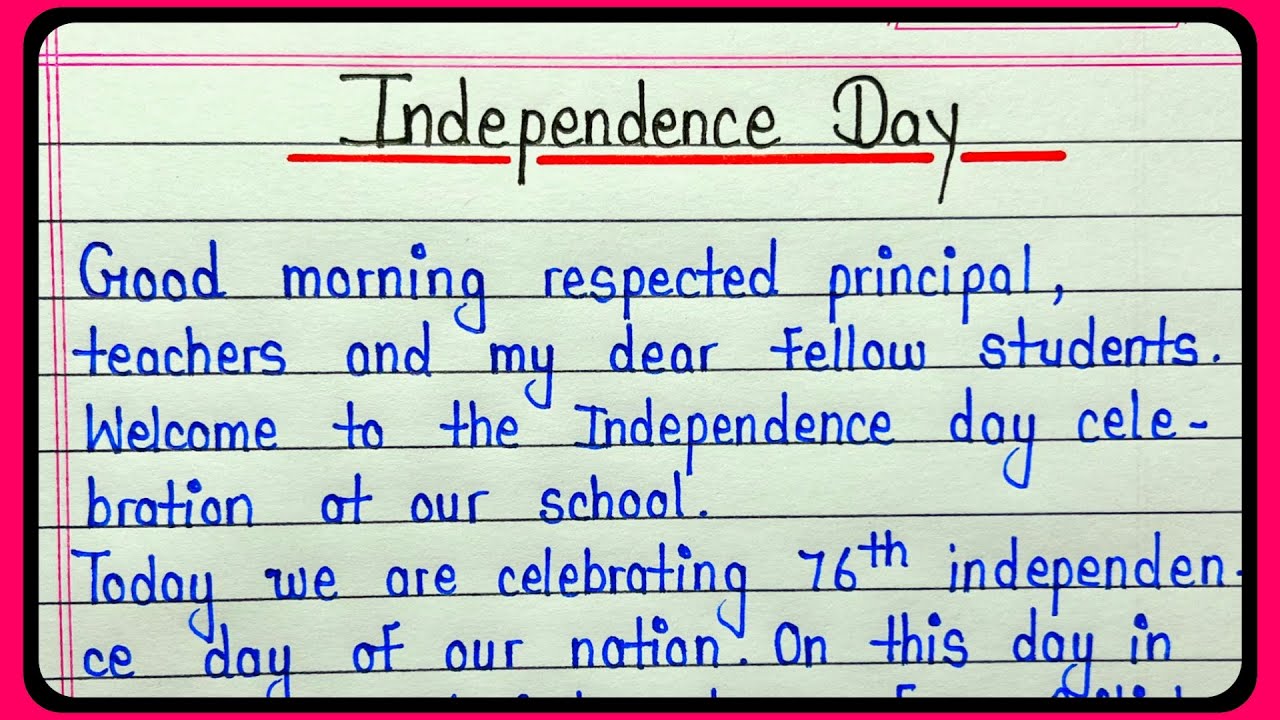 Independence Day
Good morning respected principal,
teachers and my dear fellow students.
Welcome to the Independence day cele-
bration at our school.
Today we are celebrating 76th independen-
ce day of our nation. On this day in